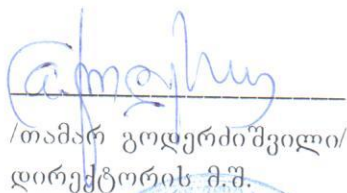 /თამარ გოდერძიშვილი/
დირექტორის მ.შ.